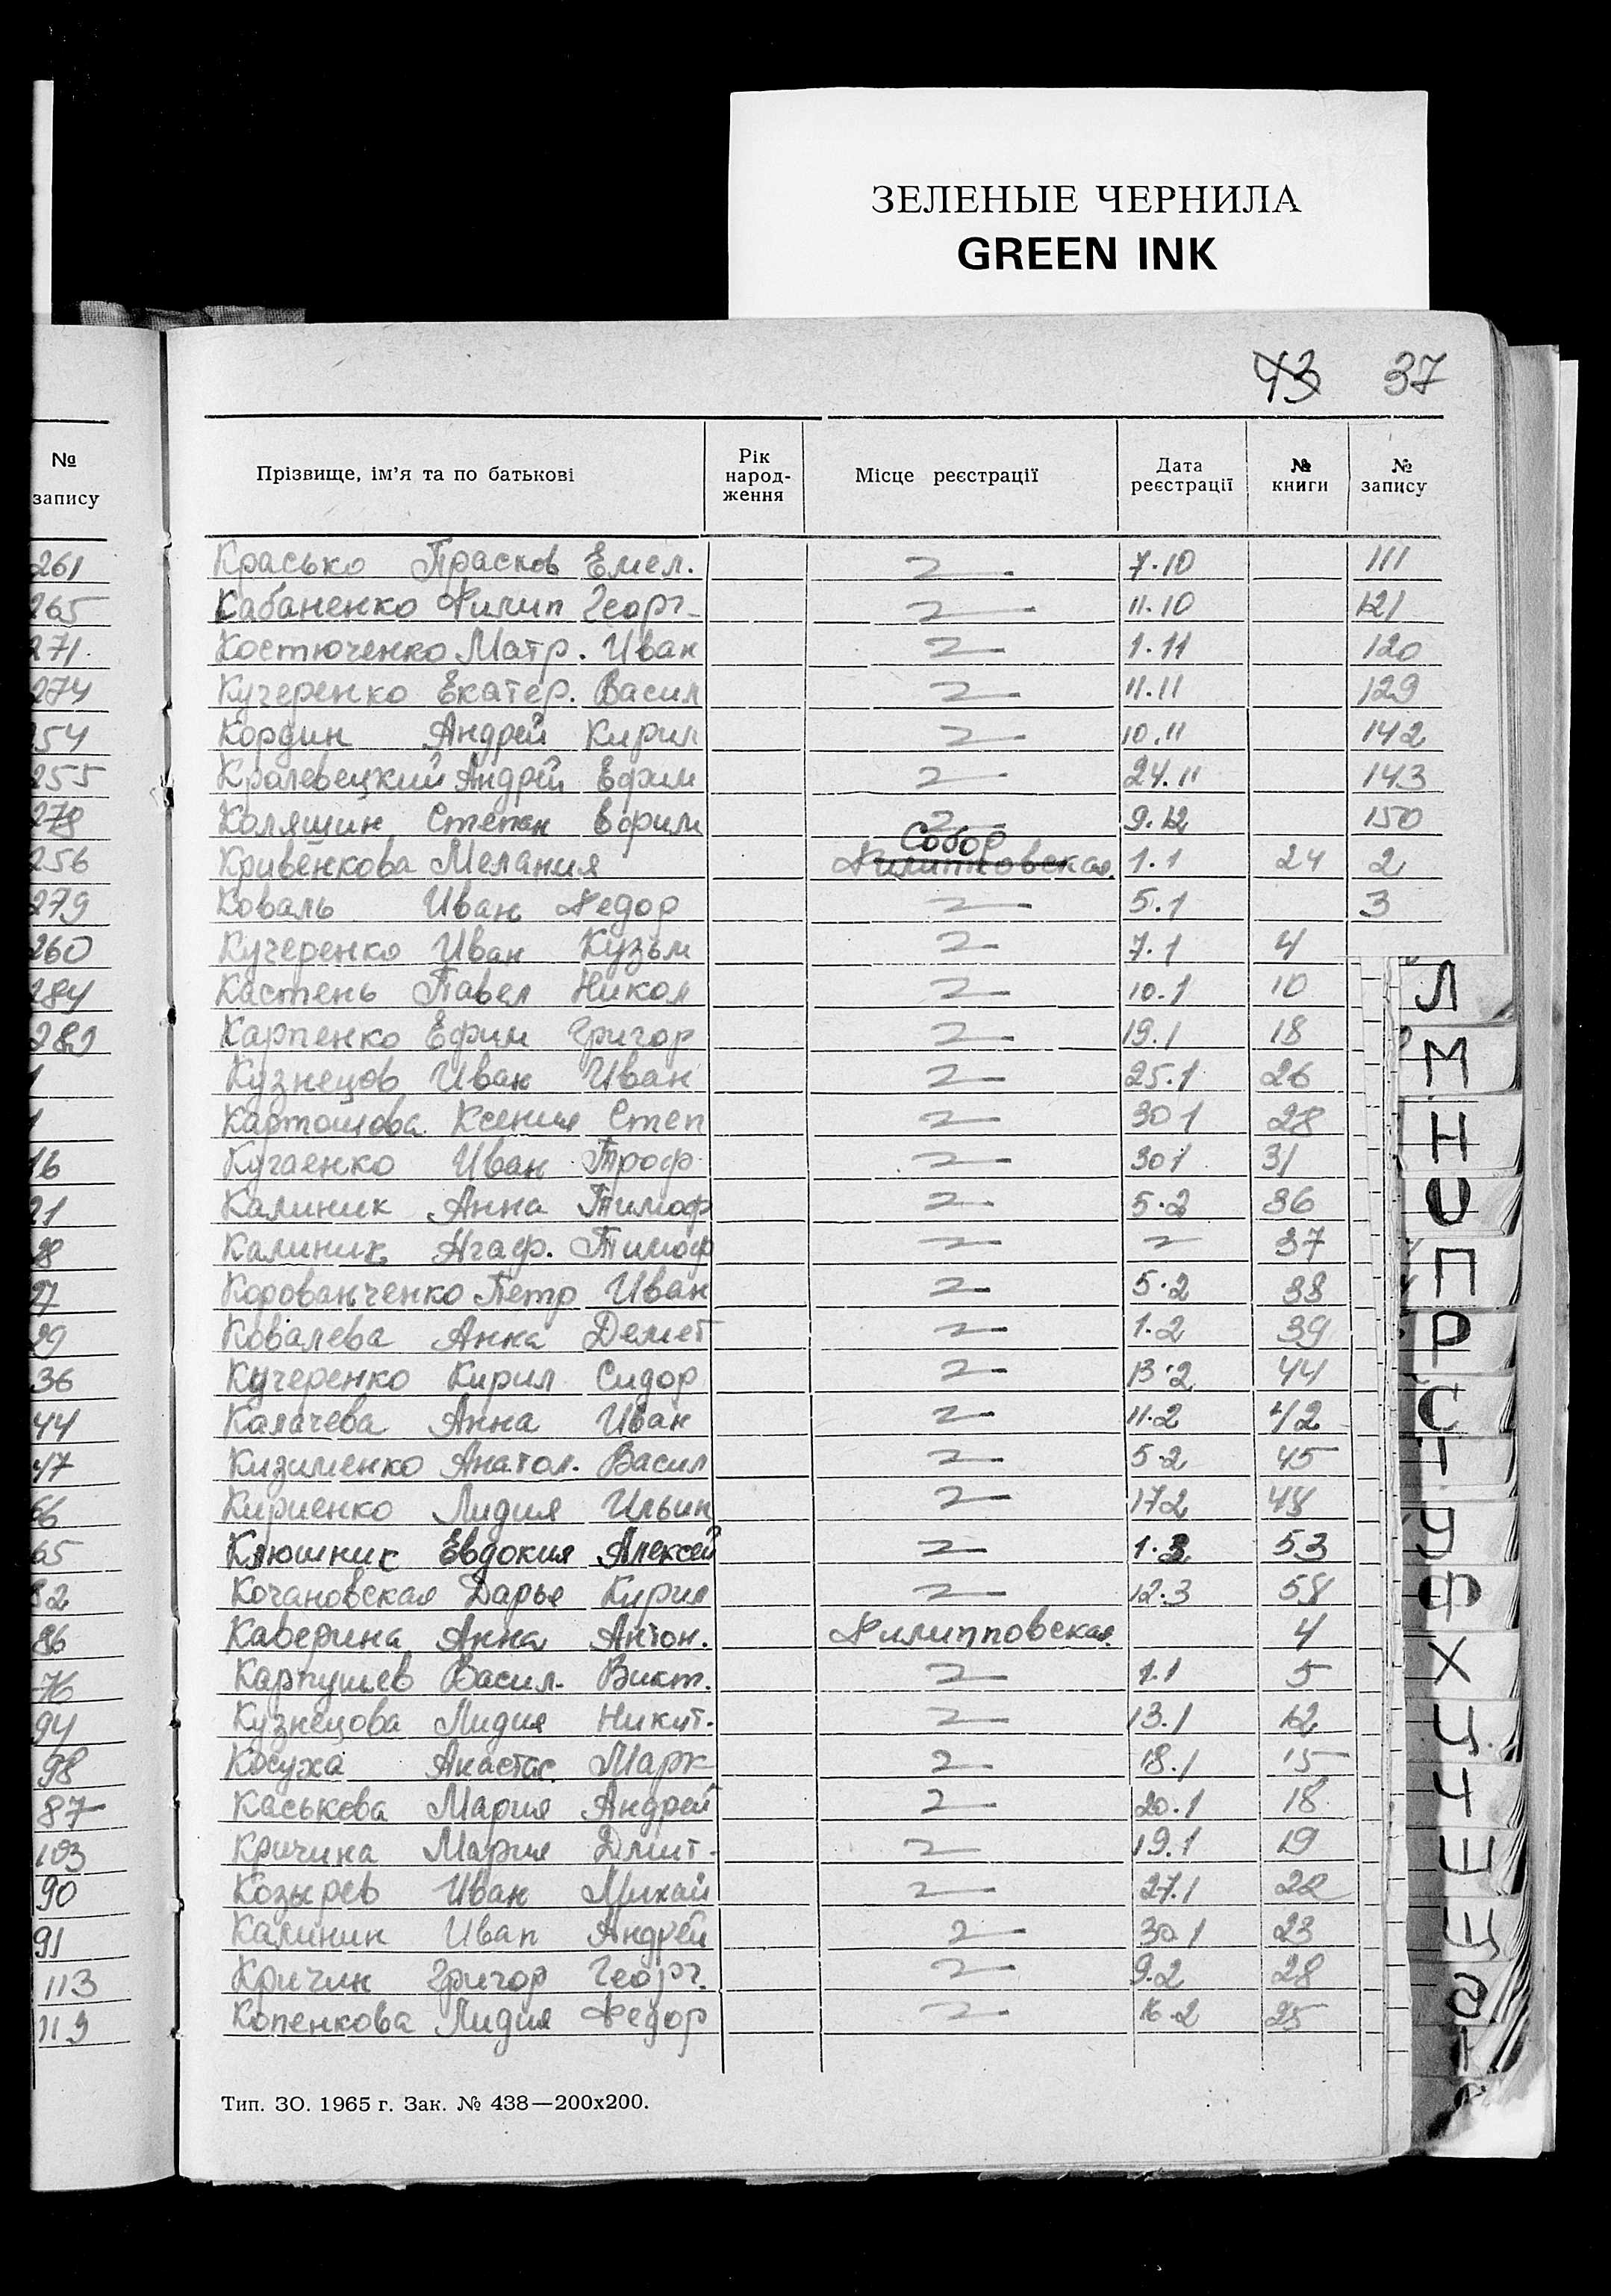 ЗЕЛЕНЫЕ ЧЕРНИЛА
GREEN INK
43 37
№ запису
Прізвище, ім'я та по батькові Рік народ-ження Місце реєстрації Дата реєстрації № книги № запису
261 Красько Прасков Емел. 7.10 111
265 Кабаненко Филип Георг 11.10 121
271 Костюченко Матр. Иван 1.11 120
274 Кучеренко Екатер. Васил 11.11 129
54 Кордин Андрей Кирил 10.11 142
255 Кралевецкий Андрей Ефим 24.11 143
278 Коляшин Степан Ефим 9.12 150
Собор
256 Кривенкова Мелания Филипповская 1.1 24 2
279 Коваль Иван Федор 5.1 3
260 Кучеренко Иван Кузьм 7.1 4
284 Кастень Павел Никол 10.1 10
282 Карпенко Ефим Григор 19.1 18
1 Кузнецов Иван Иван 25.1 26
1 Картошова Ксения Степ 30 1 28
16 Кугаенко Иван Троф 30 1 31
21 Калиник Анна Тимоф 5.2 36
28 Калиник Агаф. Тимоф 37
27 Корованченко Петр Иван 5.2 38
29 Ковалева Анна Демет 1.2 39
36 Кучеренко Кирил Сидор 13.2 44
44 Калачева Анна Иван 11.2 42
47 Кизименко Анатол. Васил 5.2 45
66 Кириенко Лидия Ильин 17 2 48
65 Клюшник Евдокия Алексей 1.3 53
82 Кочановская Дарье Кирил 12.3 58
86 Каверина Анна Антон. Филипповская 4
76 Карпушев Васил. Викт. 1.1 5
94 Кузнецова Лидия Никит. 13.1 12
98 Косуха Анастас. Марк 18.1 15
87 Каськова Мария Андрей 20.1 18
103 Кричина Мария Дмит. 19.1 19
90 Козырев Иван Михай 27.1 22
91 Калинин Иван Андрей 30 1 23
113 Кричин Григор Георг. 9.2 28
119 Копенкова Лидия Федор 16.2 25
Тип. ЗО. 1965 г. Зак. № 438—200х200.
Л
М
Н
О
П
Р
С
Т
У
Ф
Х
Ц
Ч
Ш
Щ